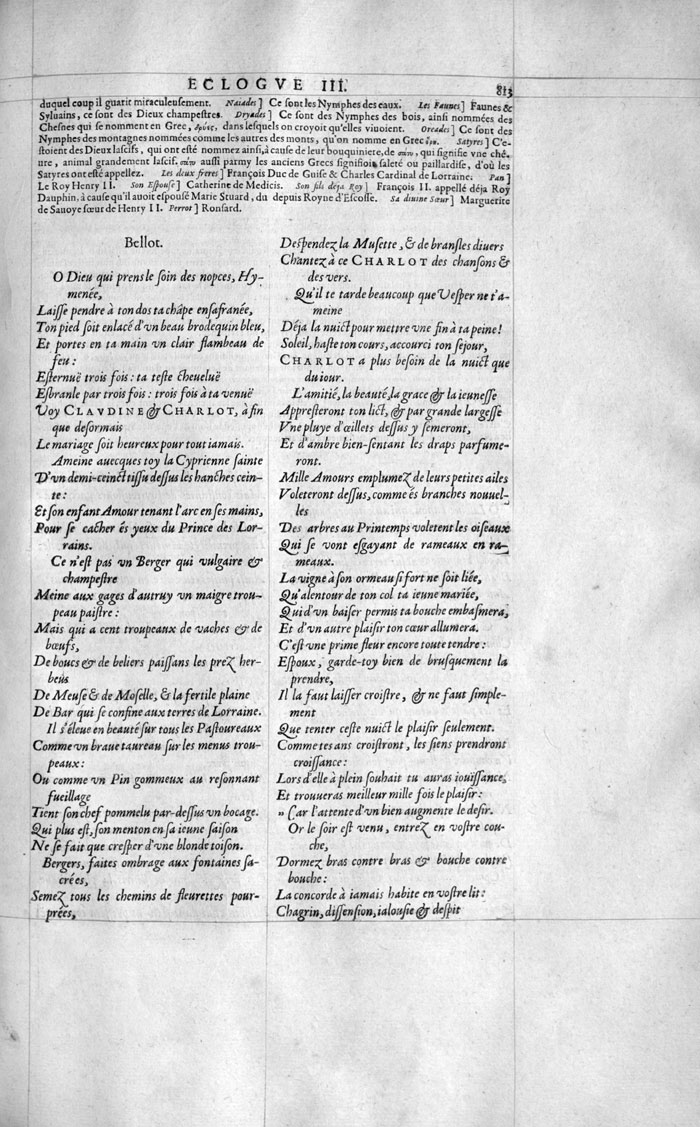 ECLOGVE III. 813
duquel coup il guarit miraculeusement. Naiades] Ce sont les Nymphes des eaux. Les Faunes] Faunes &
Syluains, ce sont des Dieux champestres. Dryades] Ce sont des Nymphes des bois, ainsi nommées des
Chesnes qui se nomment en Grec, δρύες, dans lesquels on croyoit qu'elles viuoient. Oreades] Ce sont des
Nymphes des montagnes nommées comme les autres des monts, qu'on nomme en Grec Satyres] C'e-
stoient des Dieux lascifs, qui ont esté nommez ainsi, à cause de leur bouquiniere, de qui signifie vne ché-
ure, animal grandement lascif. aussi parmy les anciens Grecs signifioit saleté ou paillardise, d'où les
Satyres ont esté appellez. Les deux freres] François Duc de Guise & Charles Cardinal de Lorraine. Pan]
Le Roy Henry II. Son Espouse] Catherine de Medicis. Son fils déja Roy] François II. appellé déja Roy
Dauphin, à cause qu'il auoit espousé Marie Stuard, du depuis Royne d'Escosse. Sa diuine Sœur] Marguerite
de Sauoye sœur de Henry II. Perrot] Ronsard.
Bellot.
O Dieu qui prens le soin des nopces, Hy-
menée,
Laisse pendre à ton dos ta châpe ensafranée,
Ton pied soit enlacé d'vn beau brodequin bleu,
Et portes en ta main vn clair flambeau de
feu:
Esternuë trois fois: ta teste cheueluë
Esbranle par trois fois: trois fois à ta venuë
Voy CLAVDINE & CHARLOT, à fin
que desormais
Le mariage soit heureux pour tout iamais.
Ameine auecques toy la Cyprienne sainte
D'vn demi-ceinct tissu dessus les hanches cein-
te:
Et son enfant Amour tenant l'arc en ses mains,
Pour se cacher és yeux du Prince des Lor-
rains.
Ce n'est pas vn Berger qui vulgaire &
champestre
Meine aux gages d'autruy vn maigre trou-
peau paistre:
Mais qui a cent troupeaux de vaches & de
bœufs,
De boucs & de beliers paissans les prez her-
beus
De Meuse & de Moselle, & la fertile plaine
De Bar qui se confine aux terres de Lorraine.
Il s'éleue en beauté sur tous les Pastoureaux
Comme vn braue taureau sur les menus trou-
peaux:
Ou comme vn Pin gommeux au resonnant
fueillage
Tient son chef pommelu par-dessus vn bocage.
Qui plus est, son menton en sa ieune saison
Ne se fait que cresper d'vne blonde toison.
Bergers, faites ombrage aux fontaines sa-
crées,
Semez tous les chemins de fleurettes pour-
prées,
Despendez la Musette, & de bransles diuers
Chantez à ce CHARLOT des chansons &
des vers.
Qu'il te tarde beaucoup que Vesper ne t'a-
meine
Déja la nuict pour mettre vne fin à ta peine!
Soleil, haste ton cours, accourci ton sejour,
CHARLOT a plus besoin de la nuict que
du iour.
L'amitié, la beauté, la grace & la ieunesse
Appresteront ton lict, & par grande largesse
Vne pluye d'œillets dessus y semeront,
Et d'ambre bien-sentant les draps parfume-
ront.
Mille Amours emplumez de leurs petites ailes
Voleteront dessus, comme és branches nouuel-
les
Des arbres au Printemps voletent les oiseaux
Qui se vont esgayant de rameaux en ra-
meaux.
La vigne à son ormeau si fort ne soit liée,
Qu'alentour de ton col ta ieune mariée,
Qui d'vn baiser permis ta bouche embasmera,
Et d'vn autre plaisir ton cœur allumera.
C'est vne prime fleur encore toute tendre:
Espoux, garde-toy bien de brusquement la
prendre,
Il la faut laisser croistre, & ne faut simple-
ment
Que tenter ceste nuict le plaisir seulement.
Comme tes ans croistront, les siens prendront
croissance:
Lors d'elle à plein souhait tu auras iouïssance,
Et trouueras meilleur mille fois le plaisir:
„ Car l'attente d'vn bien augmente le desir.
Or le soir est venu, entrez en vostre cou-
che,
Dormez bras contre bras & bouche contre
bouche:
La concorde à iamais habite en vostre lit:
Chagrin, dissension, ialousie & despit